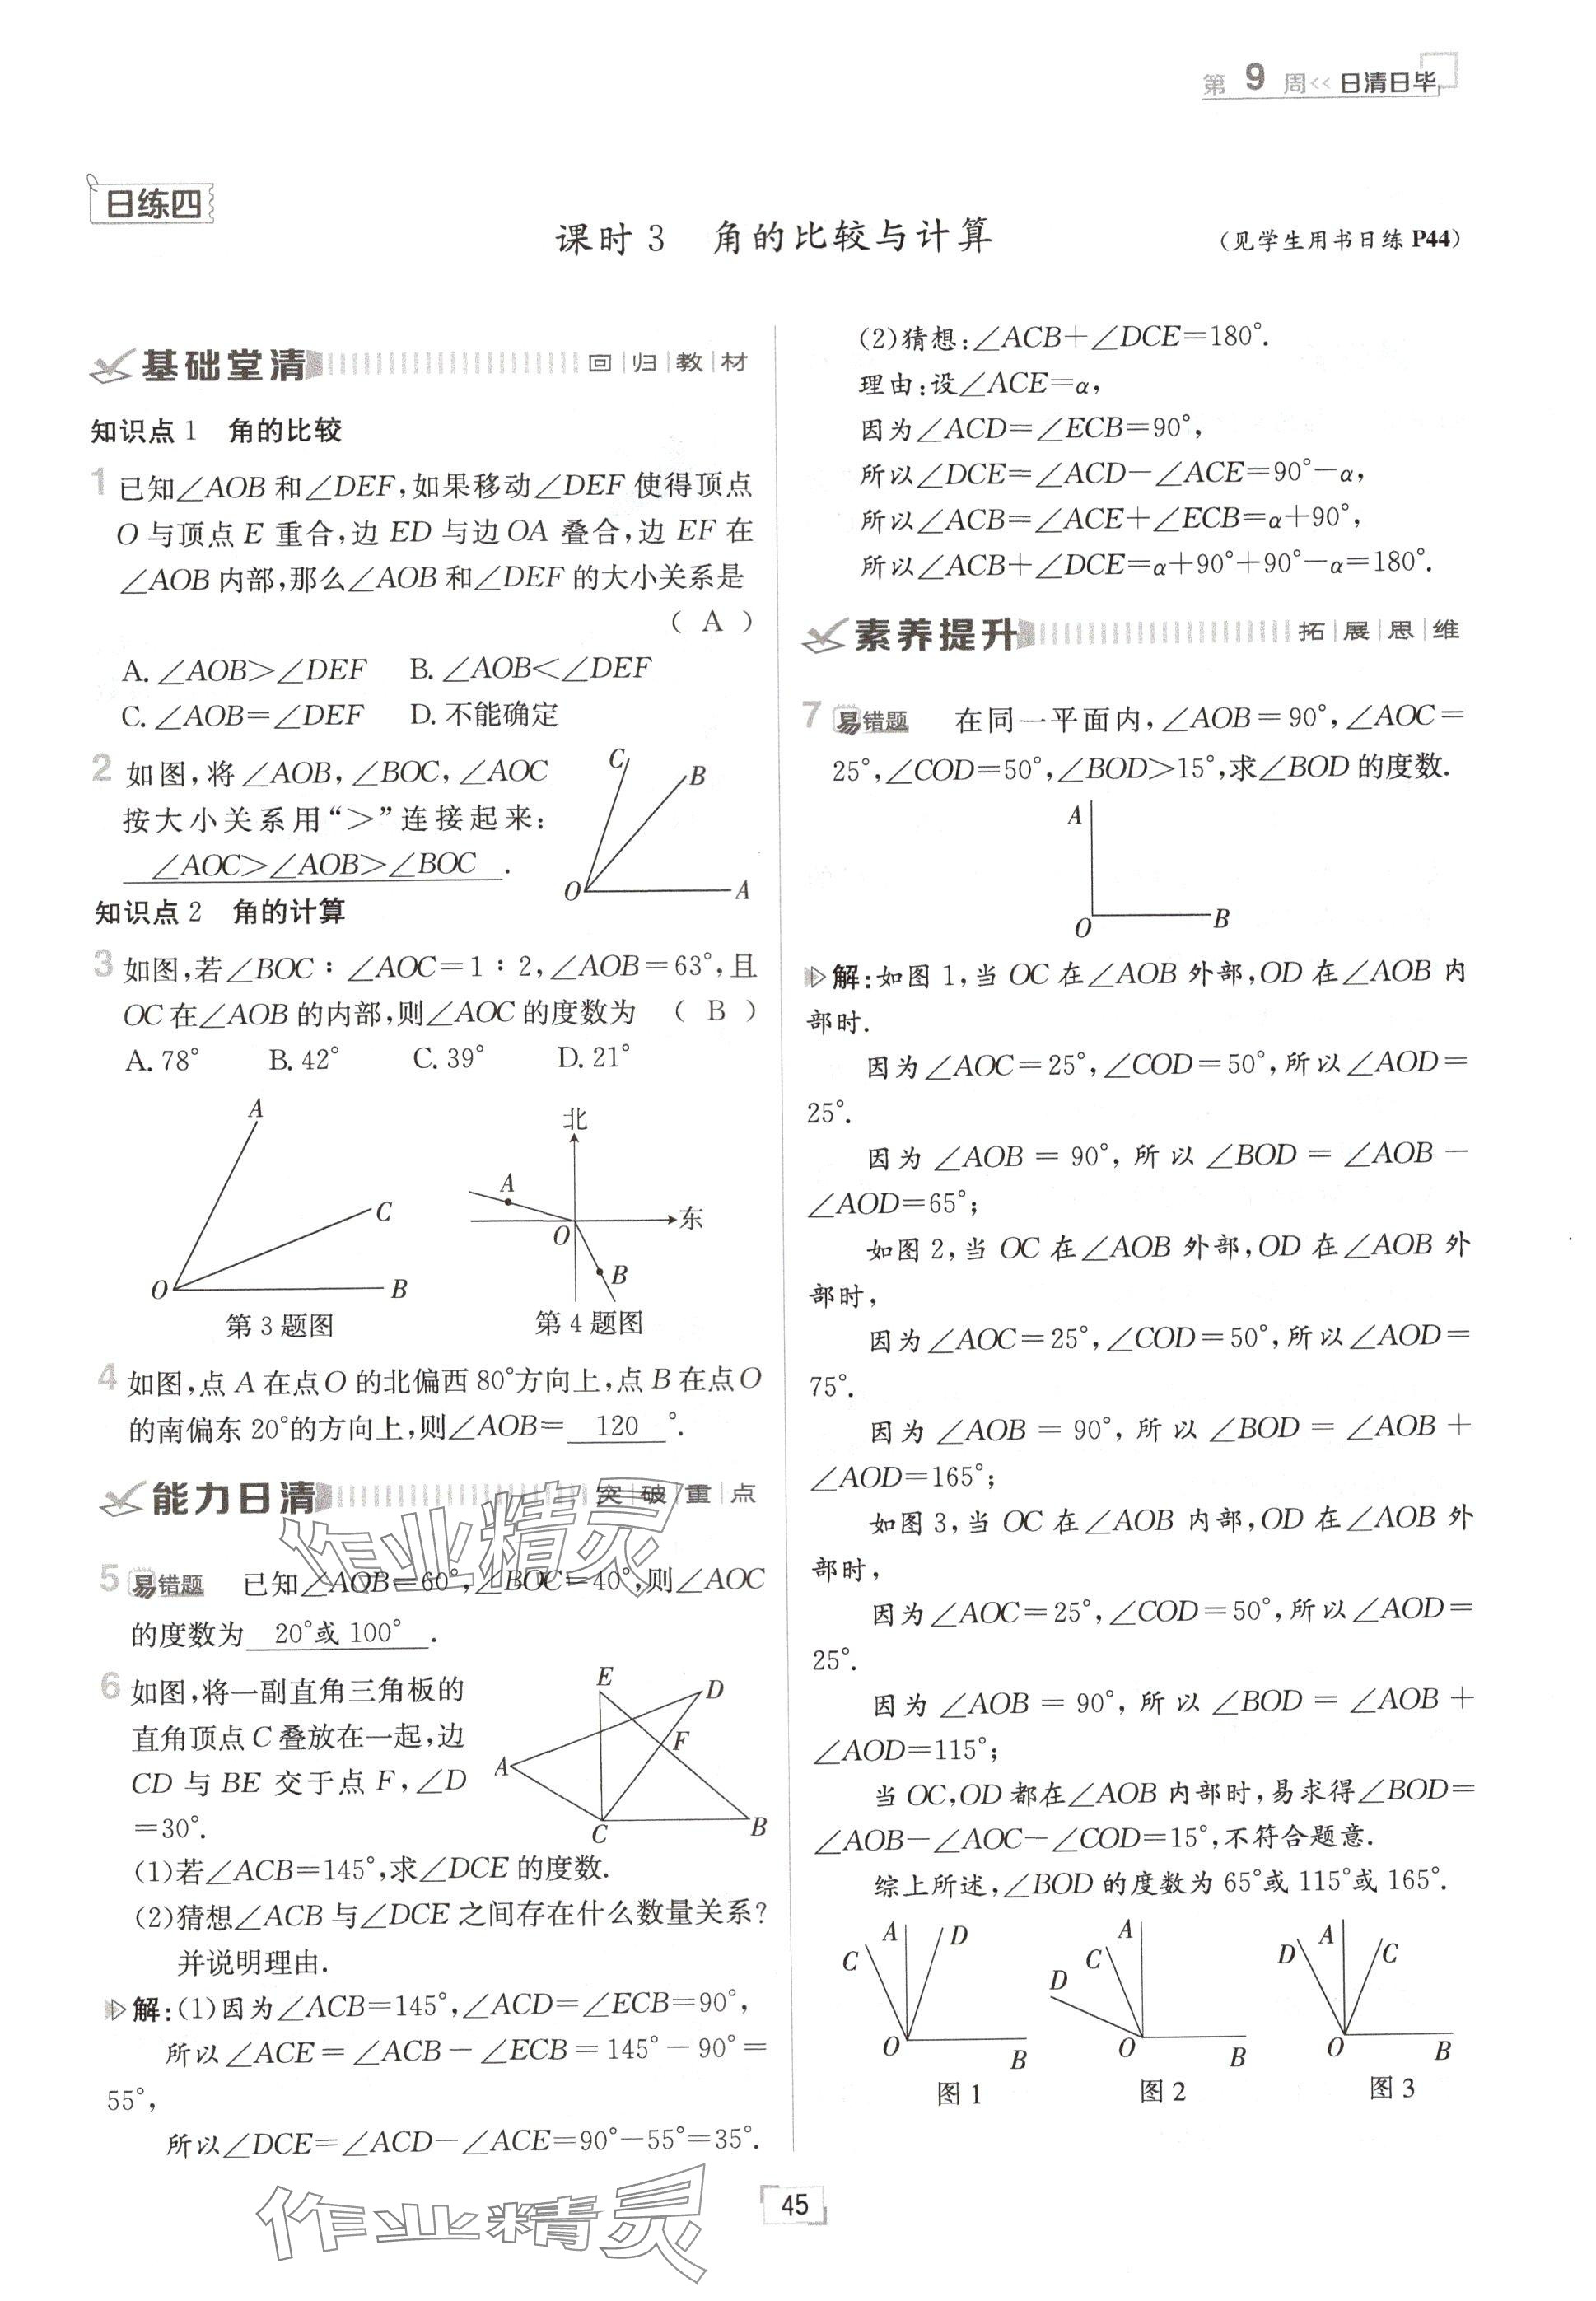 第 9 周<< 日清日毕
日练四
课时 3　角的比较与计算
(见学生用书日练 P44)
基础堂清
回|归|教|材
知识点 1　角的比较
1 已知∠AOB 和∠DEF,如果移动∠DEF 使得顶点
O 与顶点 E 重合,边 ED 与边 OA 叠合,边 EF 在
∠AOB 内部,那么∠AOB 和∠DEF 的大小关系是
( A )
A. ∠AOB>∠DEF　B. ∠AOB<∠DEF
C. ∠AOB=∠DEF　D. 不能确定
2 如图,将∠AOB,∠BOC,∠AOC
按大小关系用“>”连接起来:
∠AOC>∠AOB>∠BOC .
C
B
O
A
知识点 2　角的计算
3 如图,若∠BOC∶∠AOC=1∶2,∠AOB=63°,且
OC 在∠AOB 的内部,则∠AOC 的度数为　( B )
A. 78°　B. 42°　C. 39°　D. 21°
A
C
O
B
第 3 题图
北
A
东
O
B
第 4 题图
4 如图,点 A 在点 O 的北偏西 80°方向上,点 B 在点 O
的南偏东 20°的方向上,则∠AOB= 120 °.
能力日清
突|破|重|点
5 易错题　已知∠AOB=60°,∠BOC=40°,则∠AOC
的度数为 20°或 100° .
6 如图,将一副直角三角板的
直角顶点 C 叠放在一起,边
CD 与 BE 交于点 F,∠D
=30°.
E
D
F
A
C
B
(1)若∠ACB=145°,求∠DCE 的度数.
(2)猜想∠ACB 与∠DCE 之间存在什么数量关系?
并说明理由.
解:(1)因为∠ACB=145°,∠ACD=∠ECB=90°,
所以∠ACE=∠ACB-∠ECB=145°-90°=
55°,
所以∠DCE=∠ACD-∠ACE=90°-55°=35°.
(2)猜想:∠ACB+∠DCE=180°.
理由:设∠ACE=α,
因为∠ACD=∠ECB=90°,
所以∠DCE=∠ACD-∠ACE=90°-α,
所以∠ACB=∠ACE+∠ECB=α+90°,
所以∠ACB+∠DCE=α+90°+90°-α=180°.
素养提升
拓|展|思|维
7 易错题　在同一平面内,∠AOB=90°,∠AOC=
25°,∠COD=50°,∠BOD>15°,求∠BOD 的度数.
A
O
B
解:如图 1,当 OC 在∠AOB 外部,OD 在∠AOB 内
部时.
因为∠AOC=25°,∠COD=50°,所以∠AOD=
25°.
因为∠AOB=90°,所以∠BOD=∠AOB-
∠AOD=65°;
如图 2,当 OC 在∠AOB 外部,OD 在∠AOB 外
部时,
因为∠AOC=25°,∠COD=50°,所以∠AOD=
75°.
因为∠AOB=90°,所以∠BOD=∠AOB+
∠AOD=165°;
如图 3,当 OC 在∠AOB 内部,OD 在∠AOB 外
部时,
因为∠AOC=25°,∠COD=50°,所以∠AOD=
25°.
因为∠AOB=90°,所以∠BOD=∠AOB+
∠AOD=115°;
当 OC,OD 都在∠AOB 内部时,易求得∠BOD=
∠AOB-∠AOC-∠COD=15°,不符合题意.
综上所述,∠BOD 的度数为 65°或 115°或 165°.
A
D
C
O
B
图 1
A
C
D
O
B
图 2
D
A
C
O
B
图 3
作业精灵
作业精灵
45